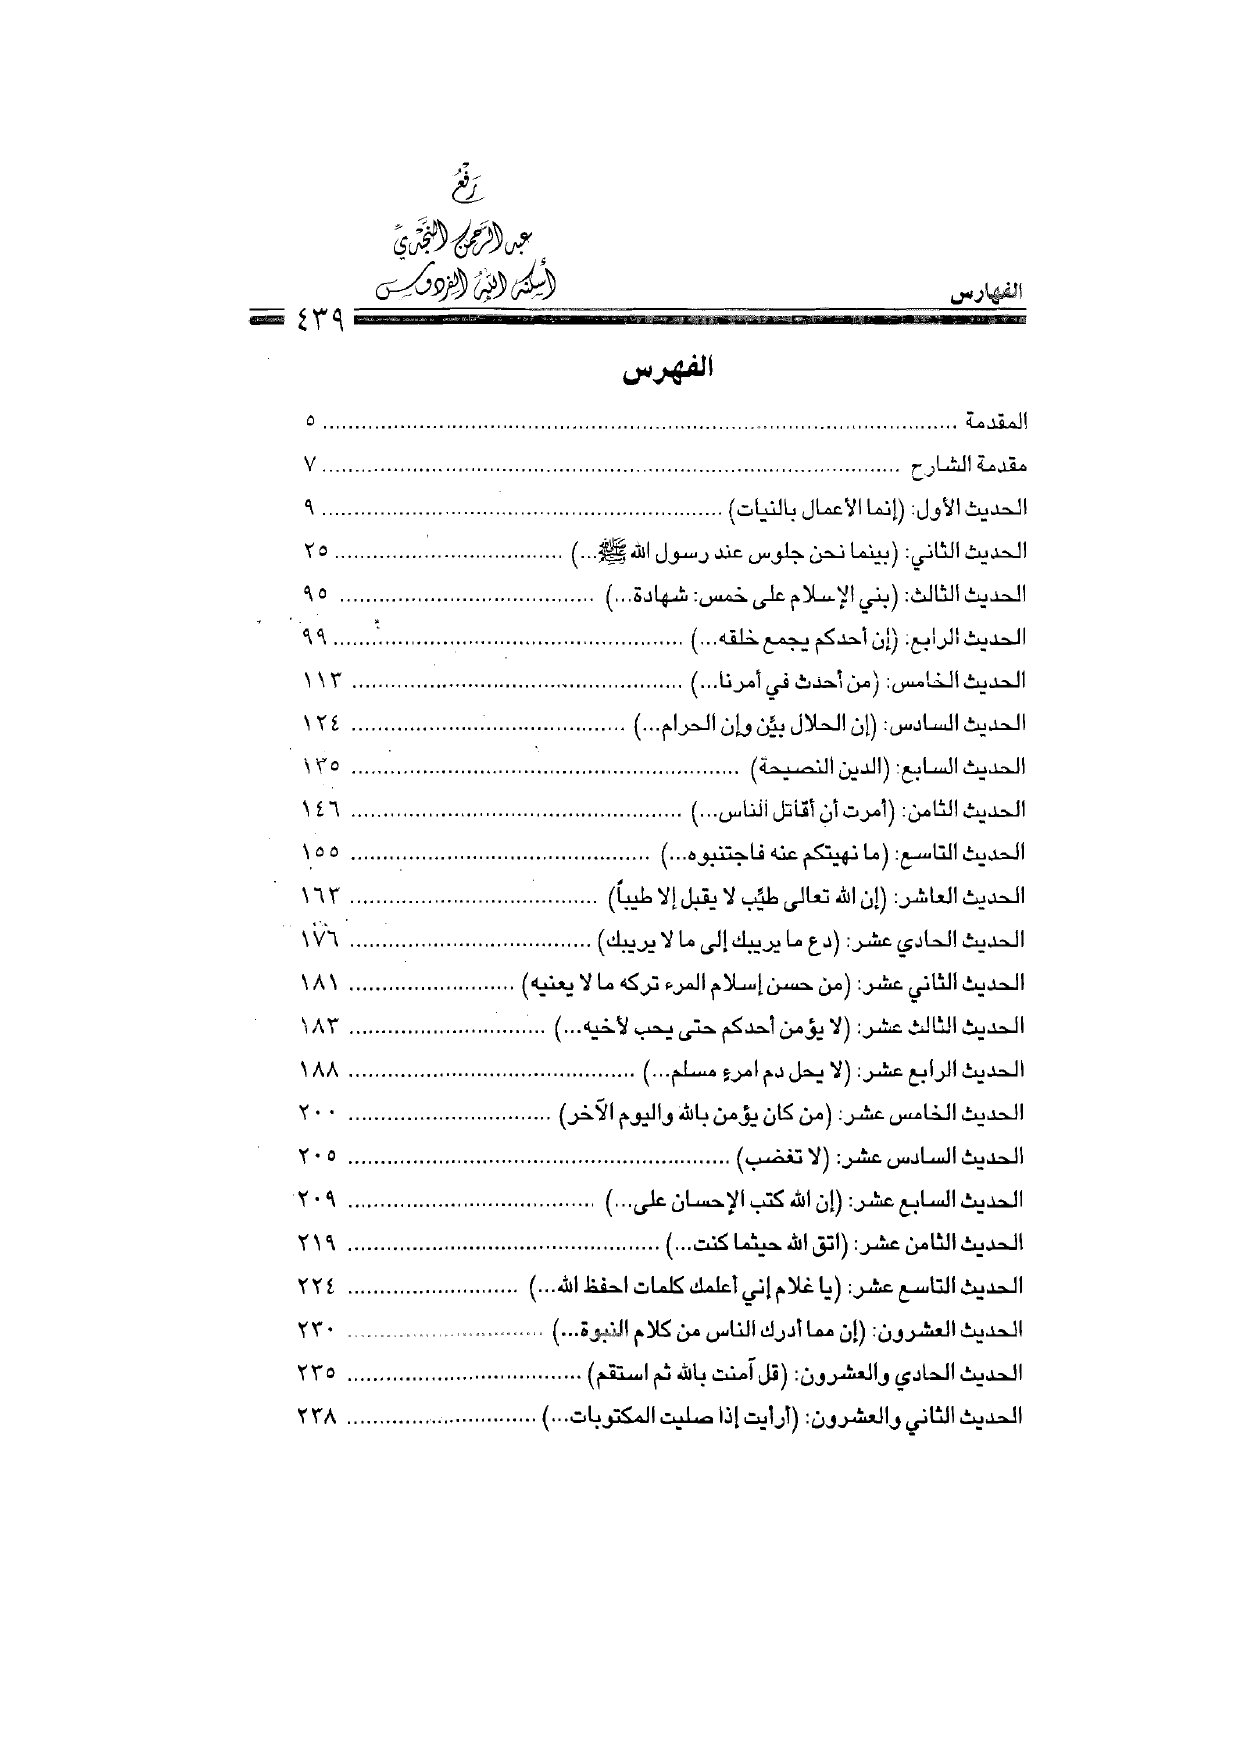 رَفْعُ
عبد الرَّحمن النَّجْديّ
أسكنه اللهُ الفردوس
الفهارس
٤٣٩
الفهرس
المقدمة ........ ٥
مقدمة الشارح ........ ٧
الحديث الأول: (إنما الأعمال بالنيات) ........ ٩
الحديث الثاني: (بينما نحن جلوس عند رسول الله ﷺ...) ........ ٢٥
الحديث الثالث: (بني الإسلام على خمس: شهادة...) ........ ٩٥
الحديث الرابع: (إن أحدكم يجمع خلقه...) ........ ٩٩
الحديث الخامس: (من أحدث في أمرنا...) ........ ١١٣
الحديث السادس: (إن الحلال بيّن وإن الحرام...) ........ ١٢٤
الحديث السابع: (الدين النصيحة) ........ ١٣٥
الحديث الثامن: (أمرت أن أقاتل الناس...) ........ ١٤٦
الحديث التاسع: (ما نهيتكم عنه فاجتنبوه...) ........ ١٥٥
الحديث العاشر: (إن الله تعالى طيِّب لا يقبل إلا طيباً) ........ ١٦٣
الحديث الحادي عشر: (دع ما يريبك إلى ما لا يريبك) ........ ١٧٦
الحديث الثاني عشر: (من حسن إسلام المرء تركه ما لا يعنيه) ........ ١٨١
الحديث الثالث عشر: (لا يؤمن أحدكم حتى يحب لأخيه...) ........ ١٨٣
الحديث الرابع عشر: (لا يحل دم امرئ مسلم...) ........ ١٨٨
الحديث الخامس عشر: (من كان يؤمن بالله واليوم الآخر) ........ ٢٠٠
الحديث السادس عشر: (لا تغضب) ........ ٢٠٥
الحديث السابع عشر: (إن الله كتب الإحسان على...) ........ ٢٠٩
الحديث الثامن عشر: (اتق الله حيثما كنت...) ........ ٢١٩
الحديث التاسع عشر: (يا غلام إني أعلمك كلمات احفظ الله...) ........ ٢٢٤
الحديث العشرون: (إن مما أدرك الناس من كلام النبوة...) ........ ٢٣٠
الحديث الحادي والعشرون: (قل آمنت بالله ثم استقم) ........ ٢٣٥
الحديث الثاني والعشرون: (أرأيت إذا صليت المكتوبات...) ........ ٢٣٨